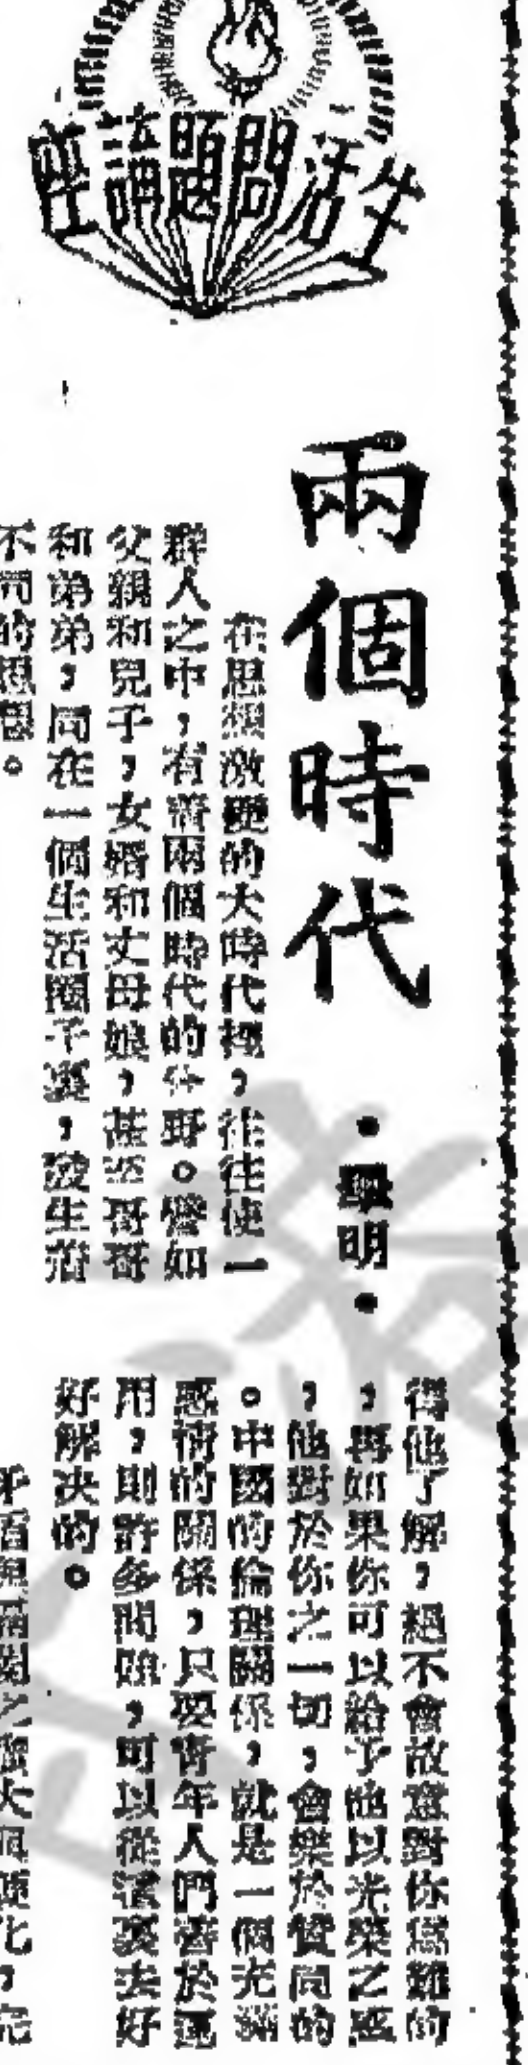 生活問題講座
兩個時代
•明•
在思想激變的大時代裡，往往使一
群人之中，有着兩個時代的分野。譬如
父親和兒子，女婿和丈母娘，甚至哥哥
和弟弟，同在一個生活圈子裏，發生着
不同的思想。
得他了解，絕不會故意對你爲難的
，再如果你可以給予他以光榮之感
，他對於你之一切，會樂於贊同的
。中國的倫理關係，就是一個充滿
感情的關係，只要青年人們善於運
用，則許多問題，可以從這裏去好
好解決的。